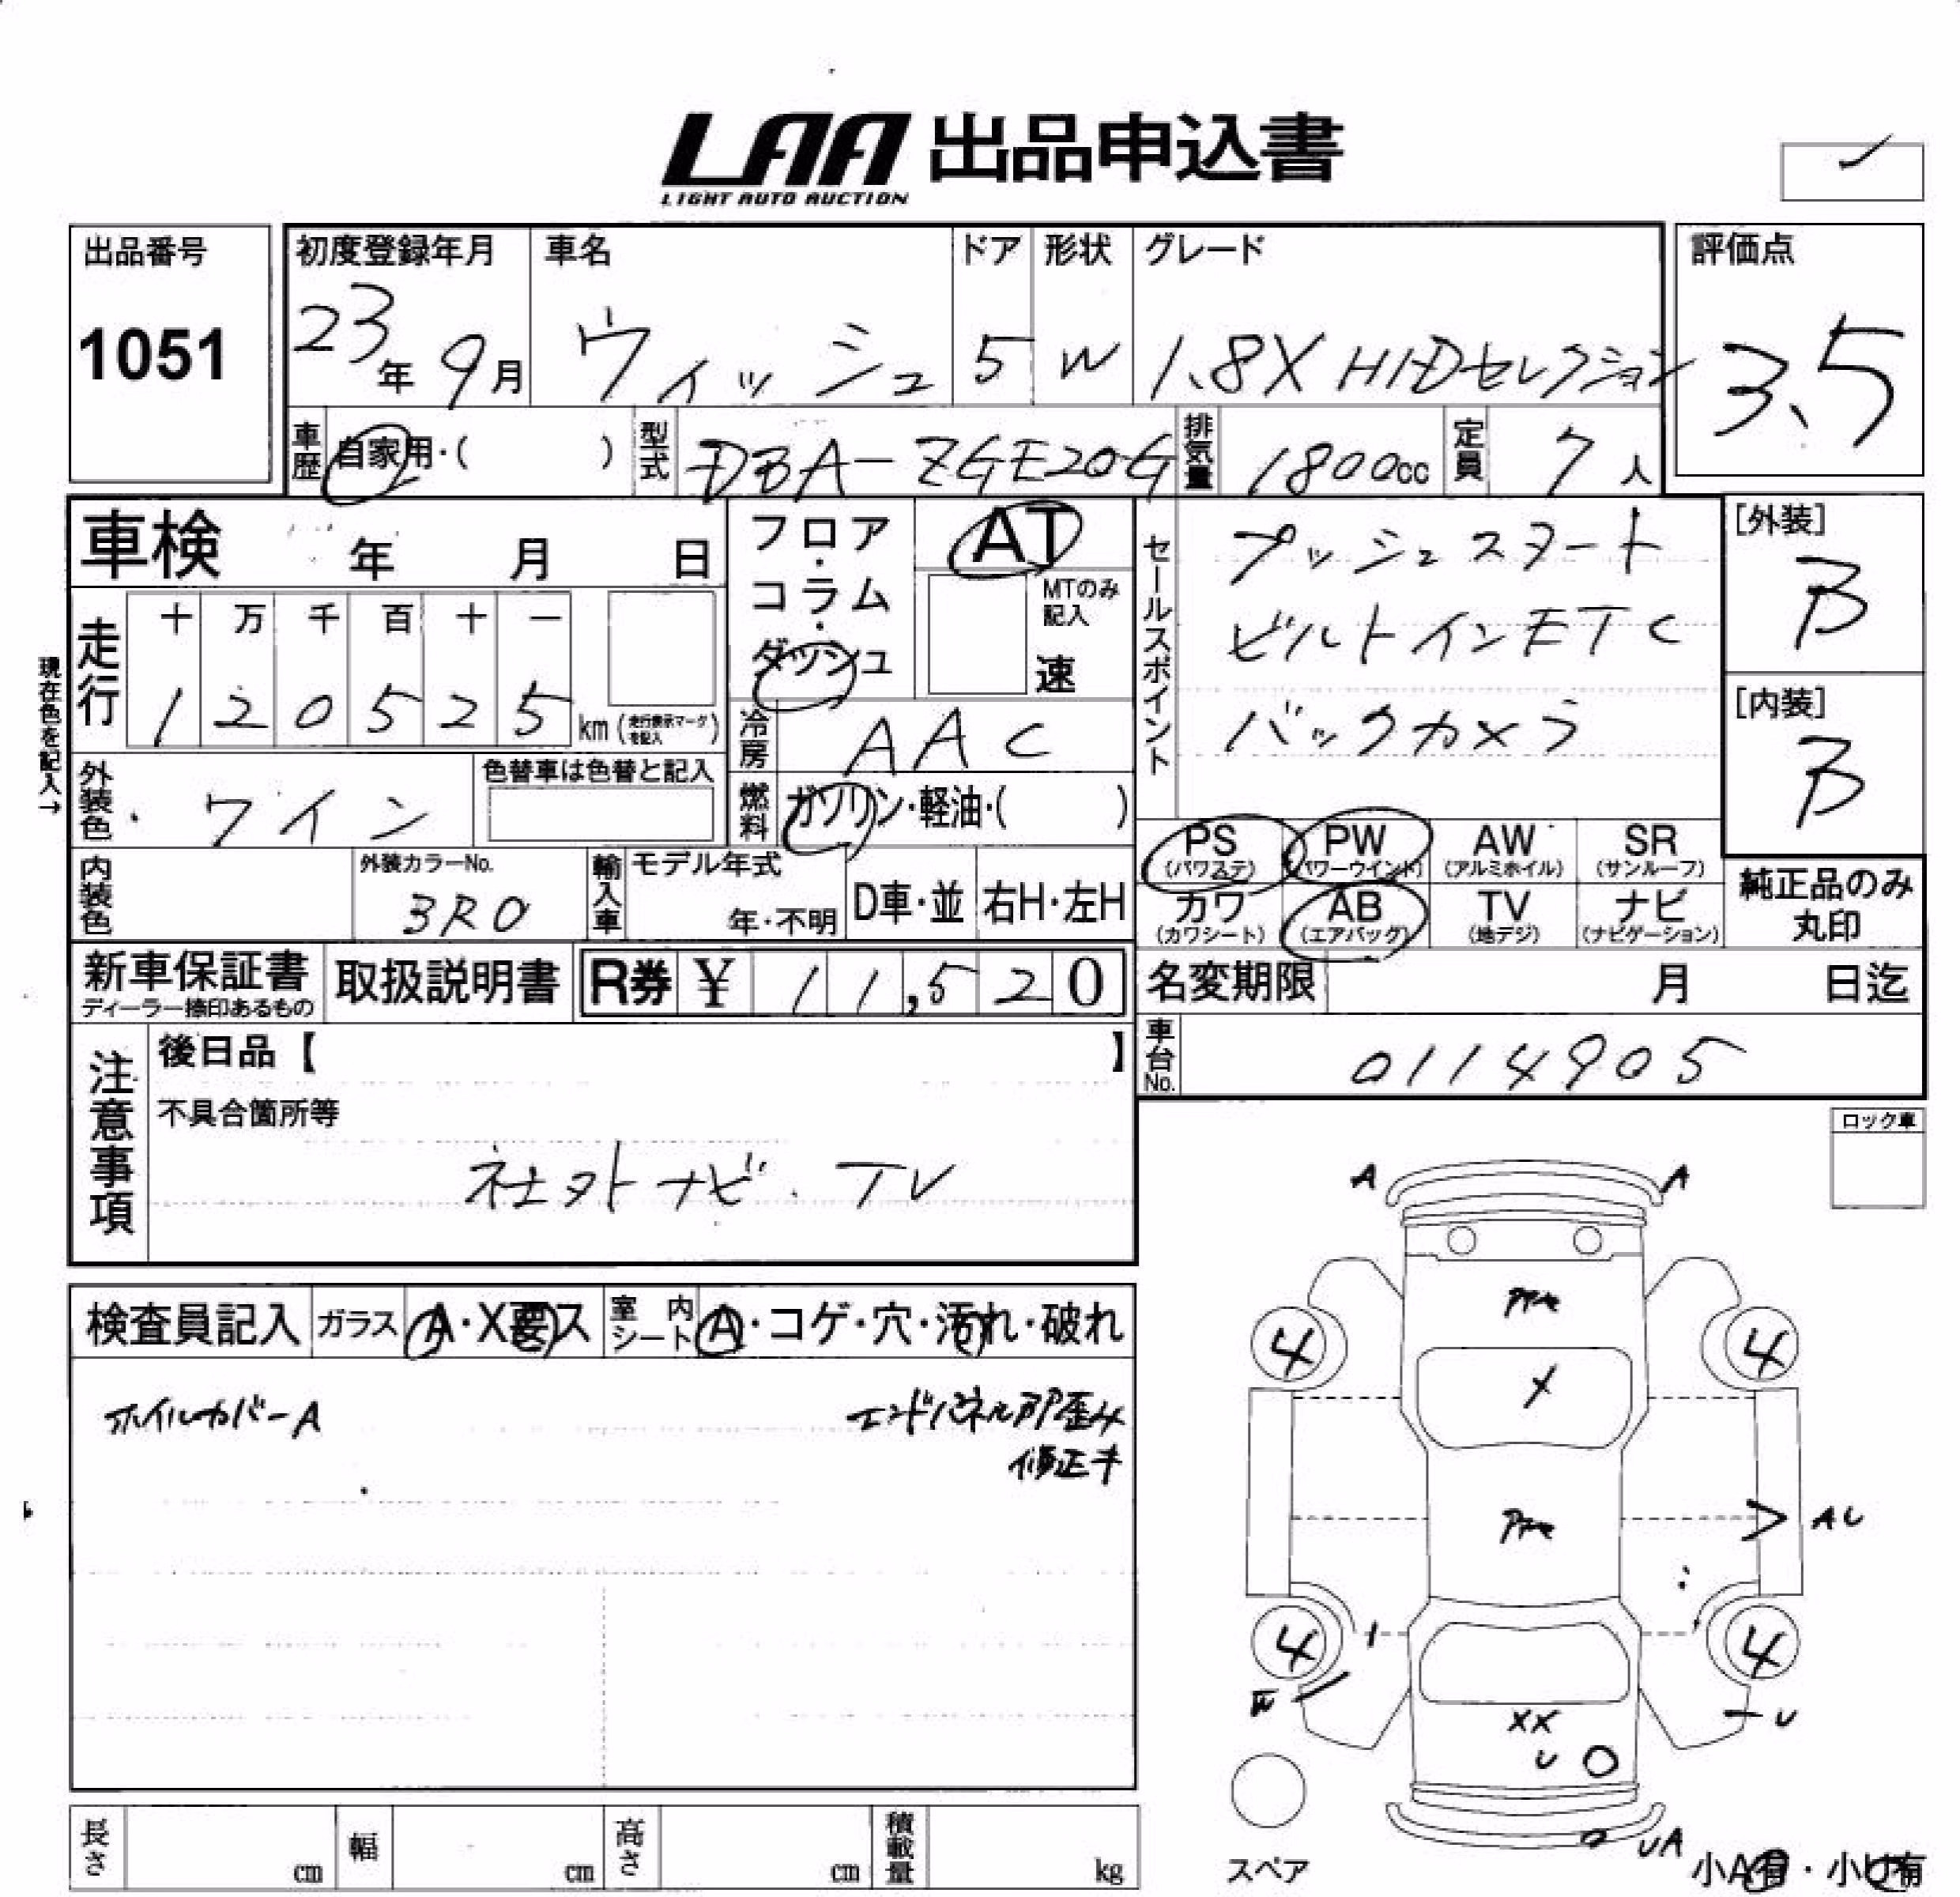 LAA 出品申込書
LIGHT AUTO AUCTION
出品番号
1051
初度登録年月
23年9月
車名
ウィッシュ
ドア
5
形状
W
グレード
1.8X HIDセレクション
評価点
3.5
車歴 自家用・( )
型式 DBA-ZGE20G
排気量 1800cc
定員 7人
車検 年 月 日
フロア・コラム・ダッシュ
AT
MTのみ記入
速
セールスポイント
プッシュスタート
ビルトインETC
バックカメラ
[外装]
B
[内装]
B
現在色を記入→
走行
十 万 千 百 十 一
1 2 0 5 2 5 km (走行表示マークを記入)
冷房 AAC
外装色 ワイン
色替車は色替と記入
燃料 ガソリン・軽油・( )
PS (パワステ)
PW (パワーウインド)
AW (アルミホイル)
SR (サンルーフ)
カワ (カワシート)
AB (エアバッグ)
TV (地デジ)
ナビ (ナビゲーション)
純正品のみ
丸印
内装色
外装カラーNo.
3R0
輸入車
モデル年式
年・不明
D車・並
右H・左H
新車保証書
ディーラー捺印あるもの
取扱説明書
R券 ¥ 11,520
名変期限 月 日迄
車台No. 0114905
注意事項
後日品【 】
不具合箇所等
社外ナビ・TV
ロック車
検査員記入
ガラス A・X要ス
室内シート A・コゲ・穴・汚れ・破れ
ホイルカバーA
エンドパネル部歪み
修正キ
A A
4 4
X
AU
4 4
W
U
XX
U
UA
スペア
小A有・小U有
長さ cm
幅 cm
高さ cm
積載量 kg